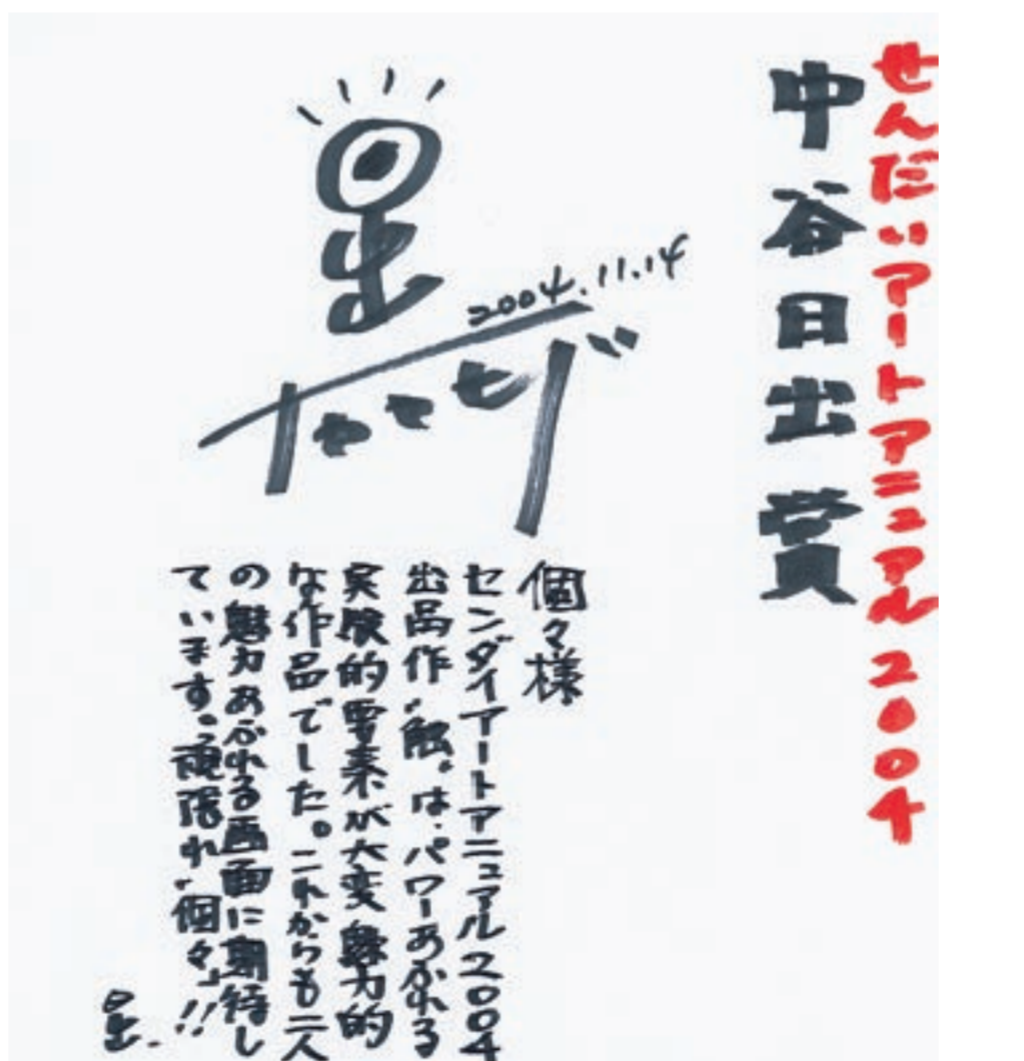 せんだいアートアニュアル2004
中谷日出賞
2004.11.14
個々様
センダイアートアニュアル2004
出品作〝触〟は、パワーあふれる
実験的要素が大変魅力的
な作品でした。これからも二人
の魅力あふれる画面に期待し
ています。頑張れ〝個々〟!!
日出